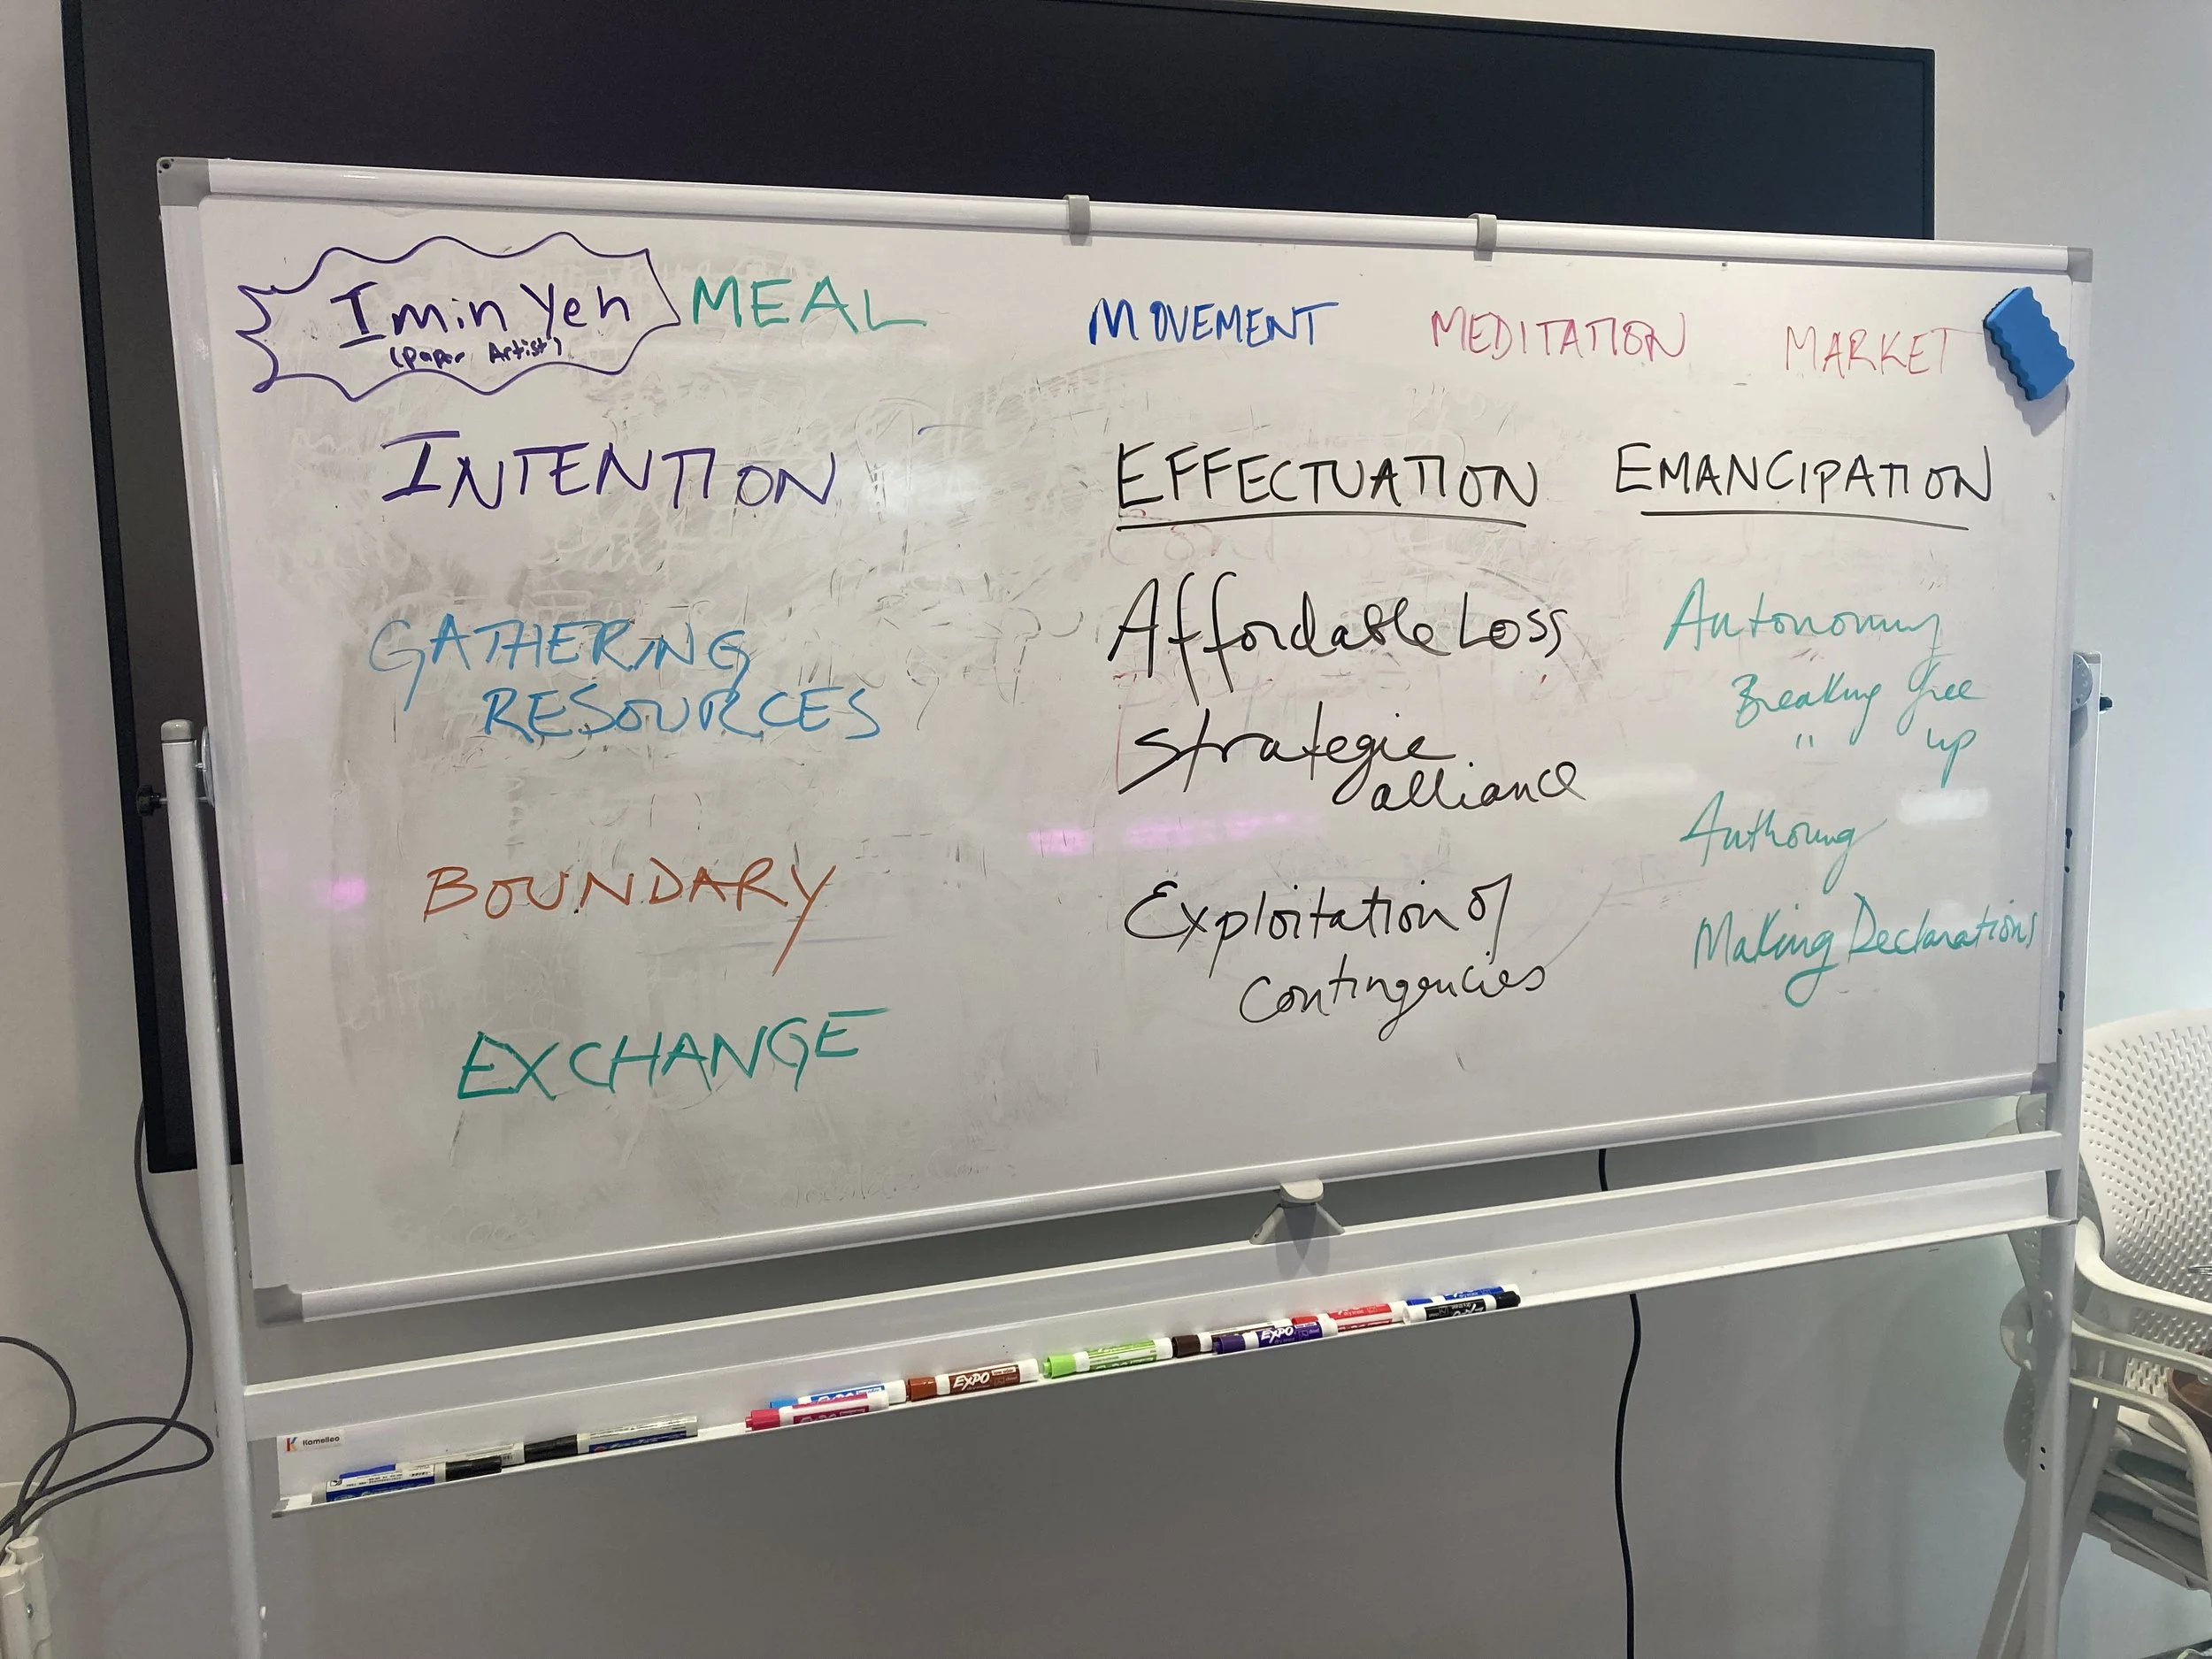 Imin Yeh
(Paper Artist)
MEAL
MOVEMENT
MEDITATION
MARKET
INTENTION
GATHERING
RESOURCES
BOUNDARY
EXCHANGE
EFFECTUATION
Affordable Loss
Strategic
alliance
Exploitation of
Contingencies
EMANCIPATION
Autonomy
Breaking free
" up
Authoring
Making Declarations
Kamelleo
EXPO
EXPO